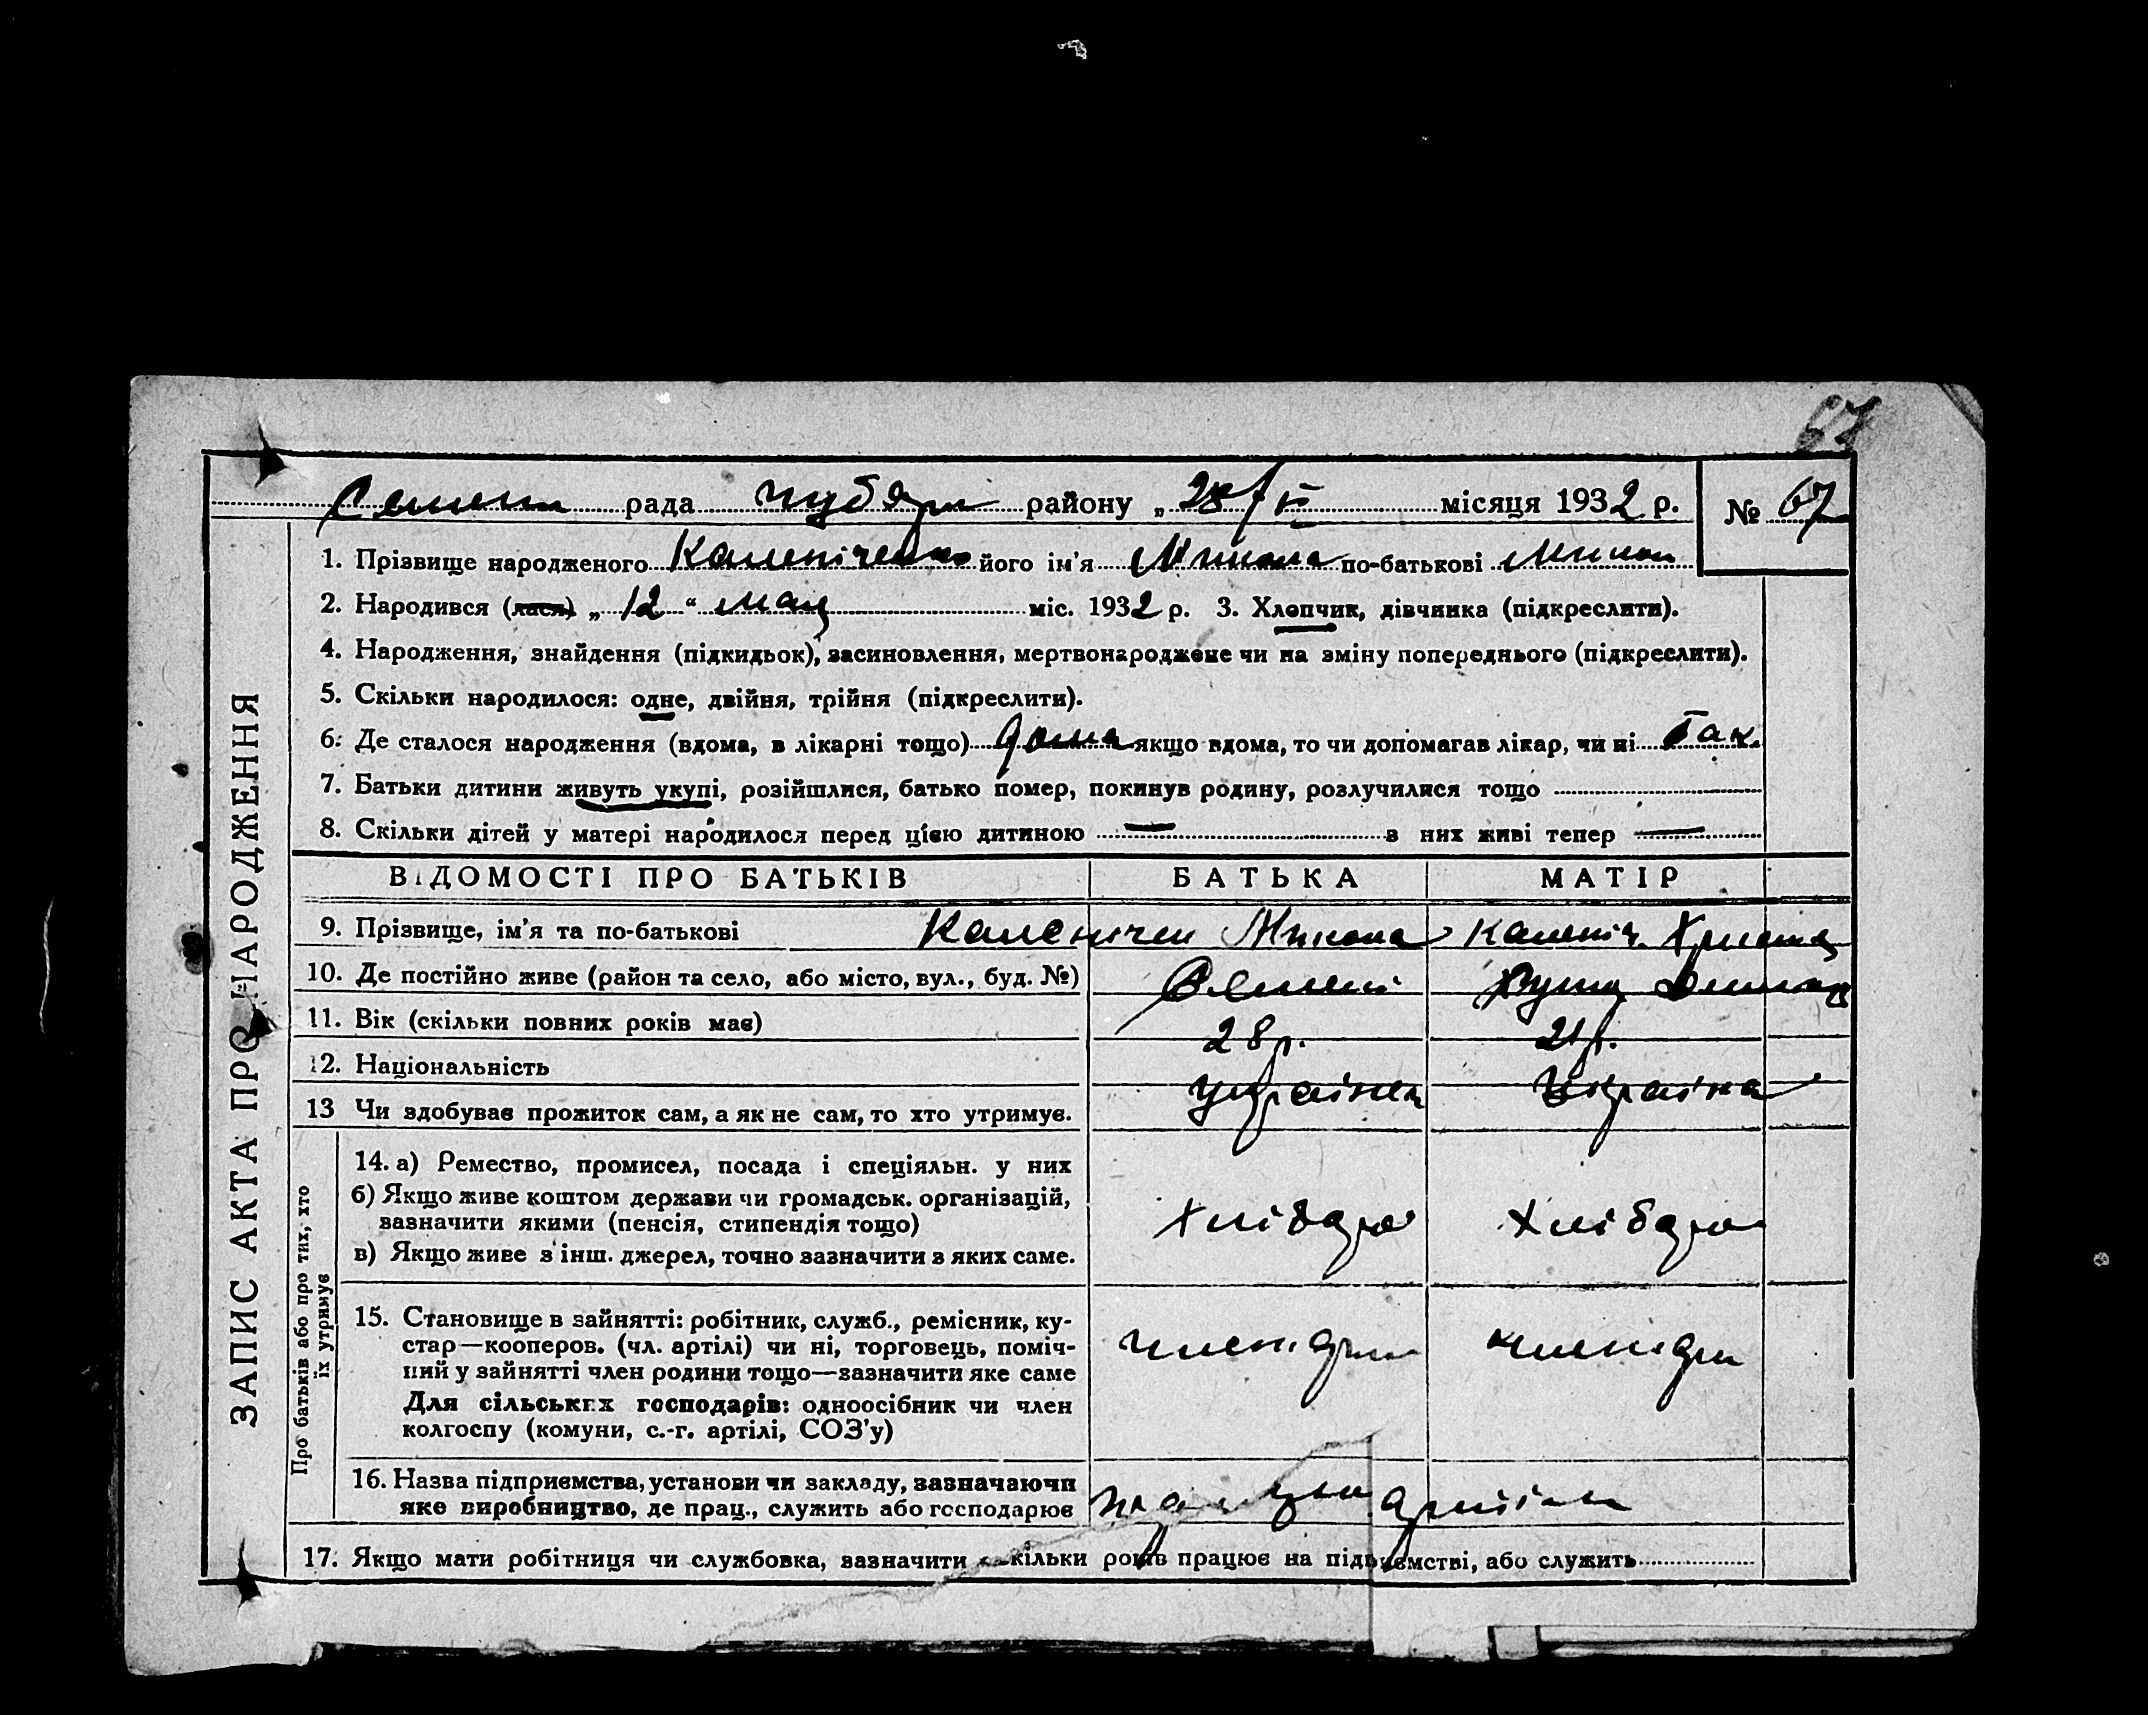 67
рада района району „ 28/VI місяця 1932 р. № 67
1. Прізвище народженого Каленіченко його ім'я Микола по-батькові Микол
2. Народився (лася) „ 12 “ мая міс. 1932 р. 3. Хлопчик, дівчинка (підкреслити).
4. Народження, знайдення (підкидьок), засиновлення, мертвонароджене чи на зміну попереднього (підкреслити).
5. Скільки народилося: одне, двійня, трійня (підкреслити).
6. Де сталося народження (вдома, в лікарні тощо) дома якщо вдома, то чи допомагав лікар, чи ні так
7. Батьки дитини живуть укупі, розійшлися, батько помер, покинув родину, розлучилися тощо
8. Скільки дітей у матері народилося перед цією дитиною — з них живі тепер —
ЗАПИС АКТА ПРО НАРОДЖЕННЯ
ВІДОМОСТІ ПРО БАТЬКІВ БАТЬКА МАТІР
9. Прізвище, ім'я та по-батькові Каленичен Микола Каленіч. Христя
10. Де постійно живе (район та село, або місто, вул., буд. №)
11. Вік (скільки повних років має) 28 р. 21 р.
12. Національність україн. Україна
13 Чи здобуває прожиток сам, а як не сам, то хто утримує.
Про батьків або про тих, хто
їх утримує
14. а) Ремество, промисел, посада і спеціяльн. у них
б) Якщо живе коштом держави чи громадськ. організацій,
зазначити якими (пенсія, стипендія тощо) Хлібаро Хлібаро
в) Якщо живе з інш. джерел, точно зазначити з яких саме.
15. Становище в зайнятті: робітник, служб., ремісник, ку-
стар—кооперов. (чл. артілі) чи ні, торговець, поміч-
ний у зайнятті член родини тощо—зазначити яке саме
Для сільських господарів: одноосібник чи член
колгоспу (комуни, с.-г. артілі, СОЗ'у)
16. Назва підприємства, установи чи закладу, зазначаючи
яке виробництво, де прац., служить або господарює
17. Якщо мати робітниця чи службовка, зазначити скільки років працює на підприємстві, або служить